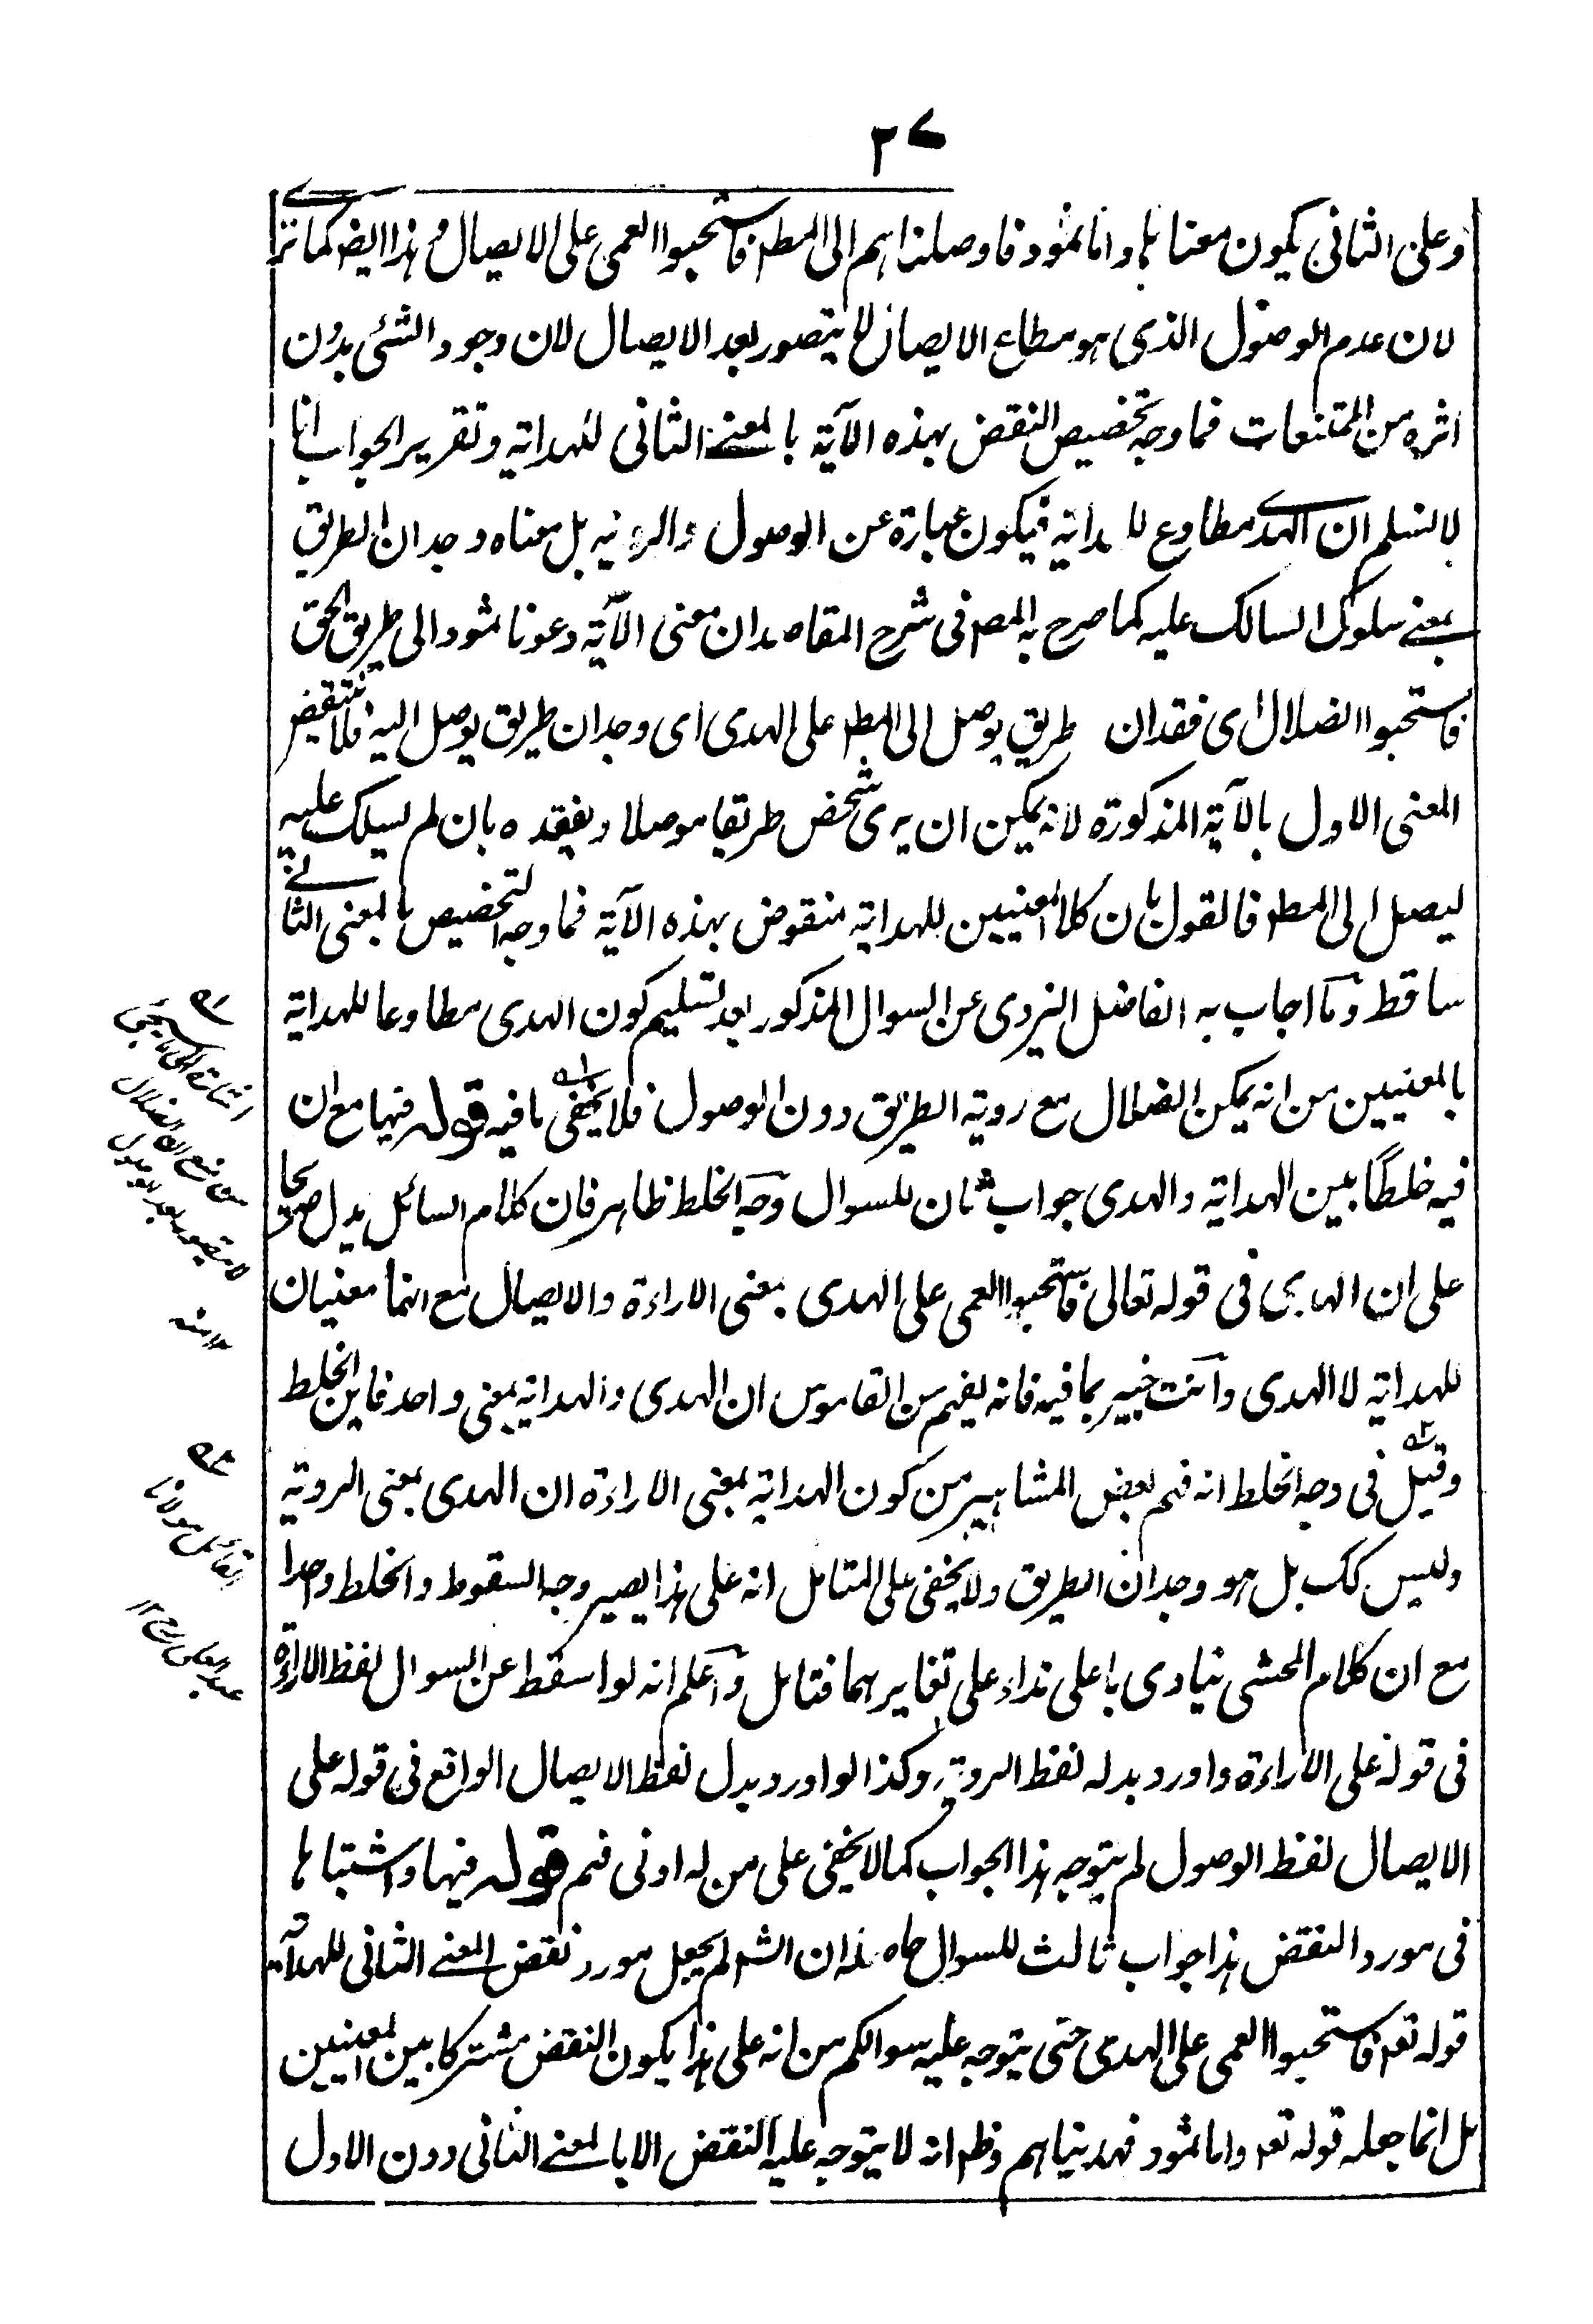 ٣٧
وعلى الثاني يكون معناها واما ثمود فاوصلناهم الى المطـ فاستحبوا العمى على الايصال وهذا ايضـ كما ترى
لان عدم الوصول الذي هو مطاوع الايصال لا يتصور بعد الايصال لان وجود الشئ بدون
اثره من الممتنعات فما وجه تخصيص النقض بهذه الآية بالمعنى الثاني للهداية وتقرير الجواب انا
لا نسلم ان الهدى مطاوع للهداية فيكون عبارة عن الوصول والروية بل معناه وجدان الطريق
بمعنى سلوك السالك عليه كما صرح به المصـ في شرح المقاصد ان معنى الآية دعونا ثمود الى طريق الحق
فاستحبوا الضلال اى فقدان طريق يوصل الى المطـ على الهدى اى وجدان طريق يوصل اليه فلا ينتقض
المعنى الاول بالآية المذكورة لانه يمكن ان يرى شخص طريقا موصلا ويفقده بان لم يسلك عليه
ليصل الى المطـ فالقول بان كلا المعنيين للهداية منقوض بهذه الآية فما وجه التخصيص بالمعنى الثاني
ساقط وما اجاب به الفاضل اليزدى عن السوال المذكور بعد تسليم كون الهدى مطاوعا للهداية
بالمعنيين من انه يمكن الضلال مع روية الطريق دون الوصول فلا يخفى ما فيه قوله فيها مع ان
فيه خلطًا بين الهداية والهدى جواب ثان للسوال ووجه الخلط ظاهر فان كلام السائل يدل صريحا
على ان الهدى في قوله تعالى فاستحبوا العمى على الهدى بمعنى الاراءة والايصال مع انهما معنيان
للهداية لا الهدى وانت خبير بما فيه فانه يفهم من القاموس ان الهدى والهداية بمعنى واحد فاين الخلط
وقيل في وجه الخلط انه فهم بعض المشاهير من كون الهداية بمعنى الاراءة ان الهدى بمعنى الروية
وليس كك بل هو وجدان الطريق ولا يخفى على المتامل انه على هذا يصير وجه السقوط والخلط واحدا
مع ان كلام المحشى ينادى باعلى نداء على تغايرهما فتامل واعلم انه لو اسقط عن السوال لفظ الاراءة
في قوله على الاراءة واورد بدله لفظ الروية وكذا لو اورد بدل لفظ الايصال الواقع في قوله على
الايصال لفظ الوصول لم يتوجه هذا الجواب كما لا يخفى على من له ادنى فهم قوله فيها واشتباها
في مورد النقض هذا جواب ثالث للسوال حاصله ان الشـ لم يجعل مورد نقض المعنى الثاني للهداية
قوله تعـ فاستحبوا العمى على الهدى حتى يتوجه عليه سوالكم من انه على هذا يكون النقض مشتركا بين المعنيين
بل انما جعله قوله تعـ واما ثمود فهديناهم وظـ انه لا يتوجه عليه النقض الا بالمعنى الثاني دون الاول
اشارة الى ما سيجئ
من منع ان الضلال
لا يتصور بعد الوصول
١٢ منه
القائل مولانا
عبد العلى رح ١٢